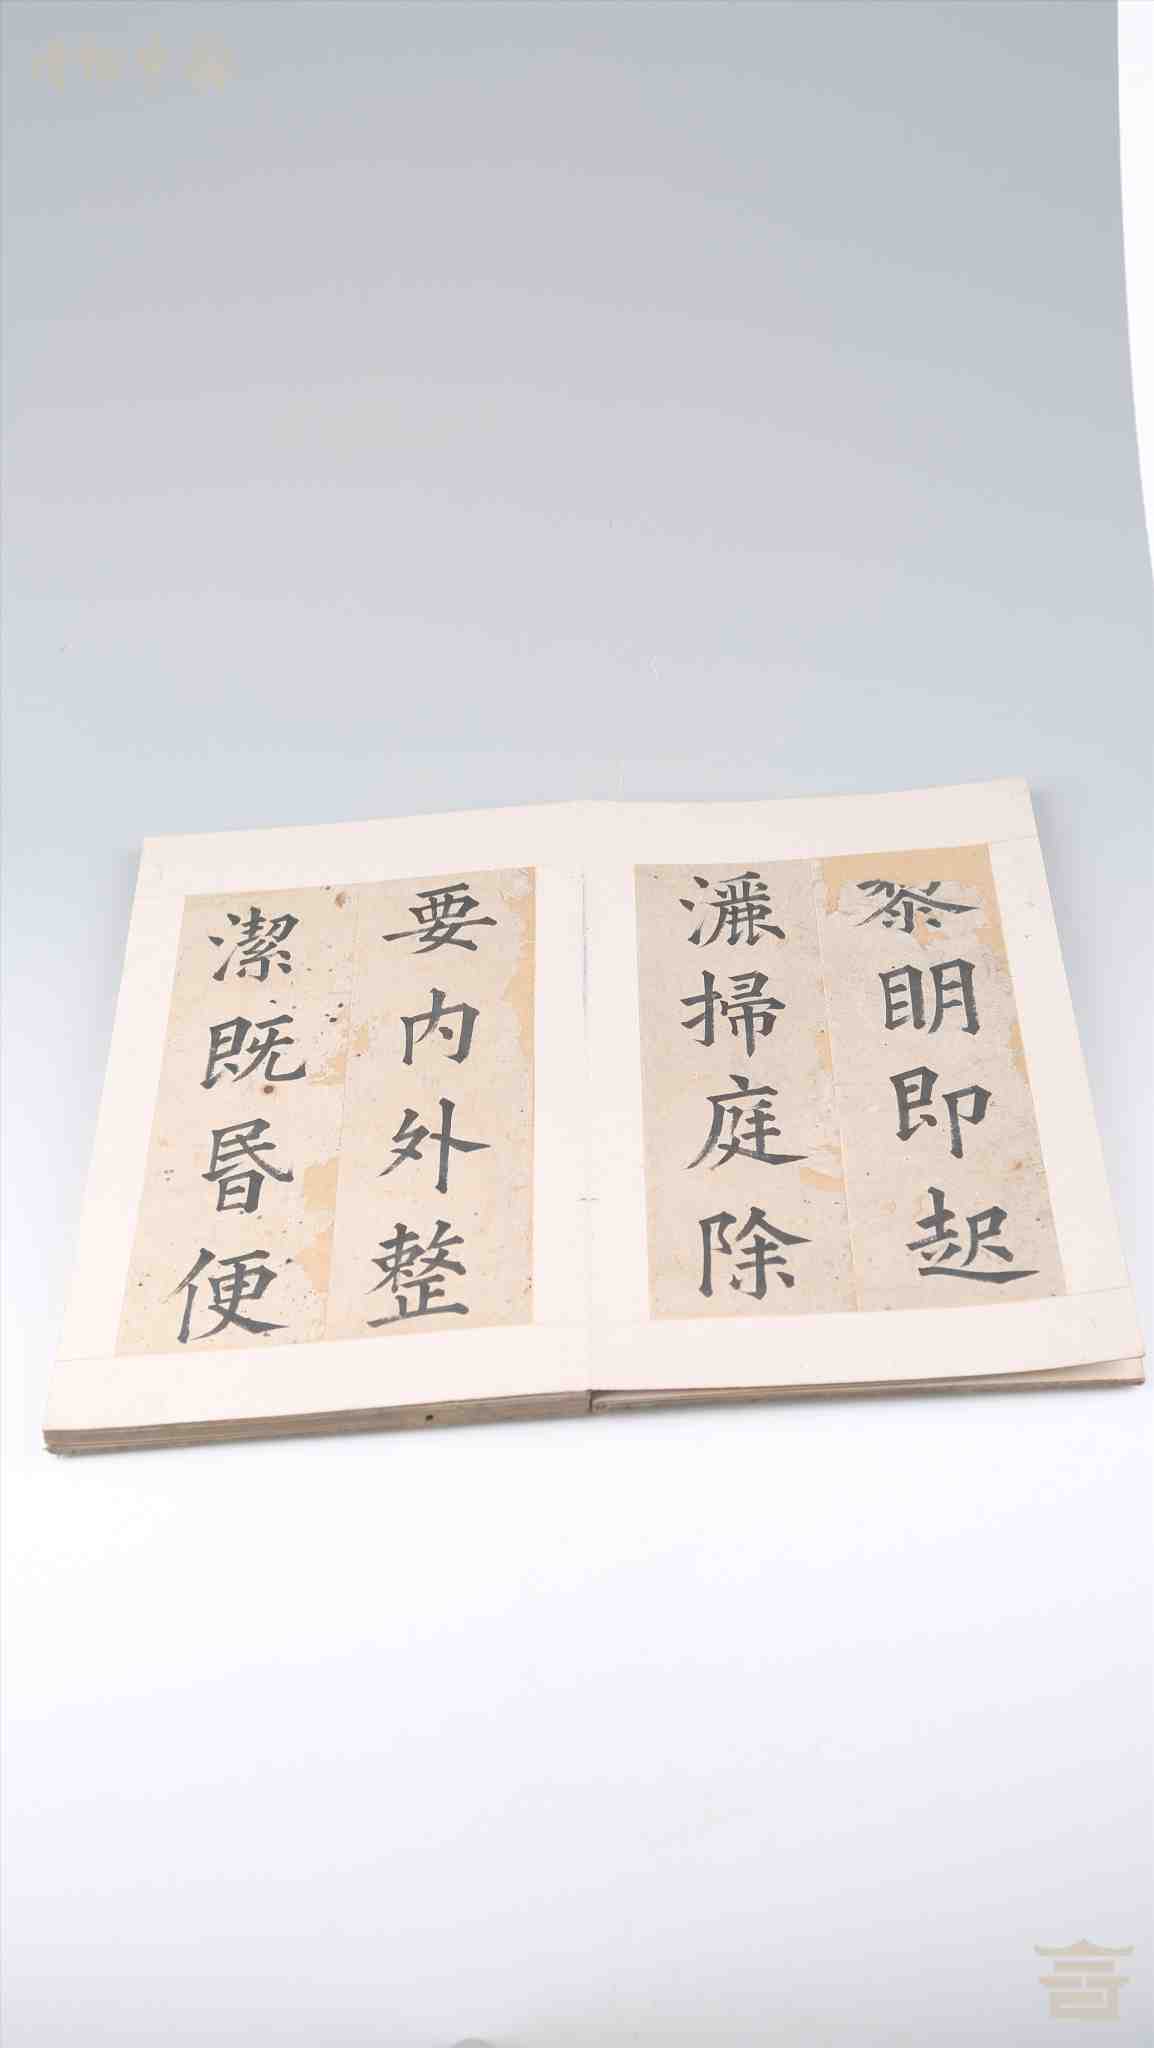 黎眀即起
灑掃庭除
要内外整
潔既昬便